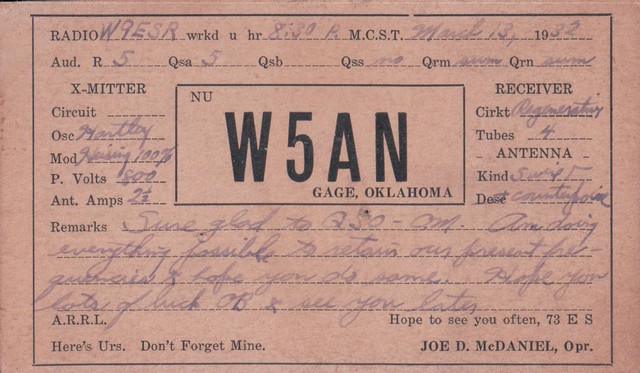 RADIO W9ESR wrkd u hr 8:30 P. M.C.S.T. March 13, 1932
Aud. R 5 Qsa 5 Qsb Qss no Qrm sum Qrn sum
X-MITTER
Circuit
Osc Hartley
Mod Heising 100%
P. Volts 800
Ant. Amps 2½
NU
W5AN
GAGE, OKLAHOMA
RECEIVER
Cirkt Regenerative
Tubes 4
ANTENNA
Kind
Desc counterpoise
Remarks Sure glad to QSO - OM. Am doing
everything possible to retain our present fre-
quencies & hope you do same. Hope you
lots of luck OB & see you later
A.R.R.L. Hope to see you often, 73 E S
Here's Urs. Don't Forget Mine. JOE D. McDANIEL, Opr.